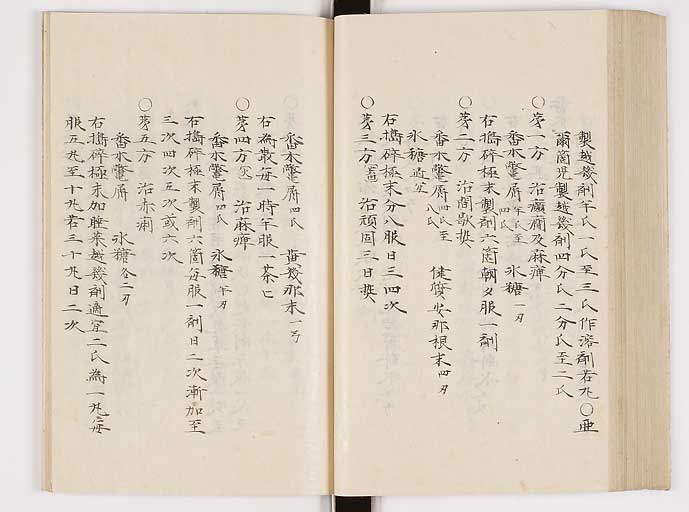 製越幾剤午氏一氏至三氏作溶剤若丸〇亜
爾箇児製越幾剤四分氏二分氏至二氏
〇第一方 治癲癇及麻痺
番木鼈屑 午氏至四氏 氷糖一刃
右搗碎極末製剤六箇朝夕服一剤
〇第二方 治間歇
番木鼈屑四氏至八氏 健質安那根末四刃
氷糖適宜
右搗碎極末分八服日三四次
〇第三方 治頑固三日
番木鼈屑四氏 幾那末一
右為散毎一時午服一茶匕
〇第四方 治麻痺
番木鼈屑四氏 氷糖午刃
右搗碎極末製剤六箇毎服一剤日二次漸加至
三次四次五次或六次
〇第五方 治赤痢
番木鼈屑 氷糖各二刃
右搗碎極末加睡菜越幾剤適宜二氏為一丸毎
服五丸至十丸若三十丸日二次